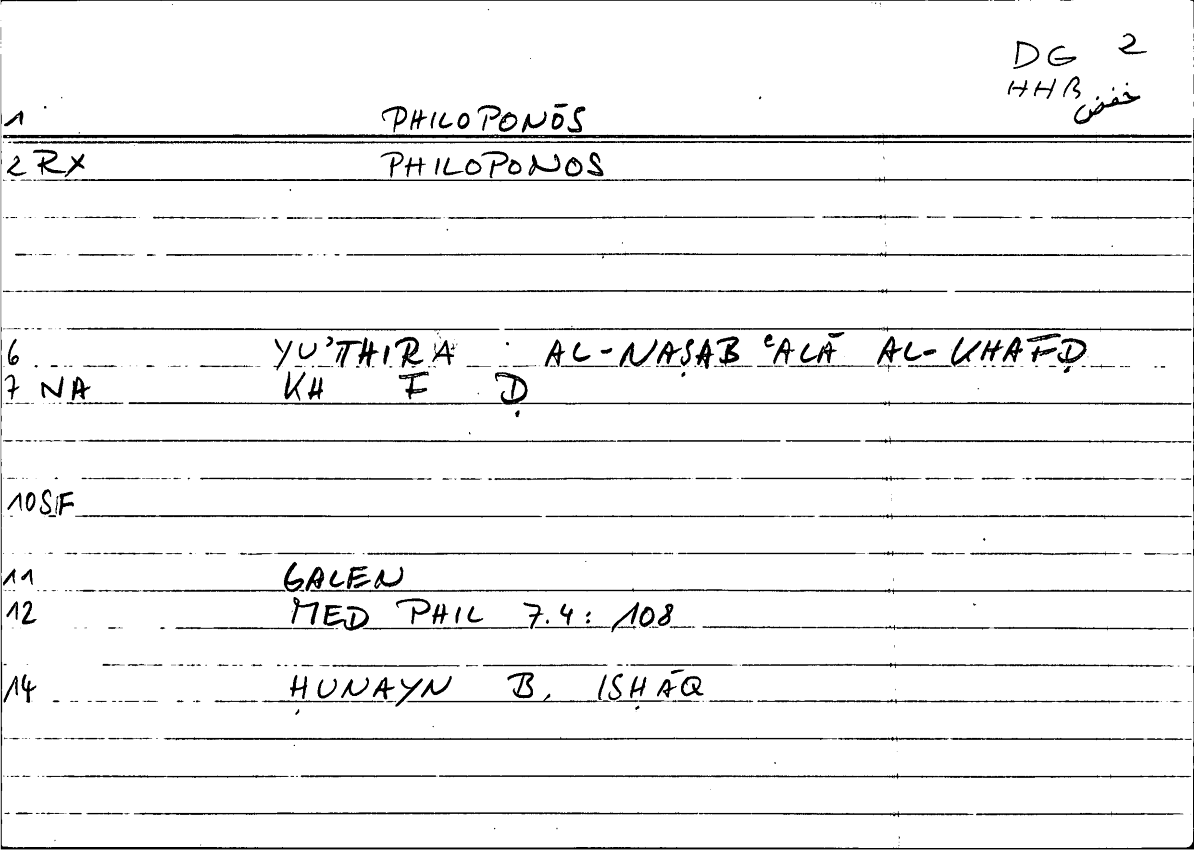 DG 2
HHB خفض
1 PHILOPONŌS
2 RX PHILOPONOS
6 YU'THIRA AL-NAṢAB ʿALĀ AL-KHAFḌ
7 NA KH F Ḍ
10 SF
11 GALEN
12 MED PHIL 7.4: 108
14 ḤUNAYN B. ISḤĀQ